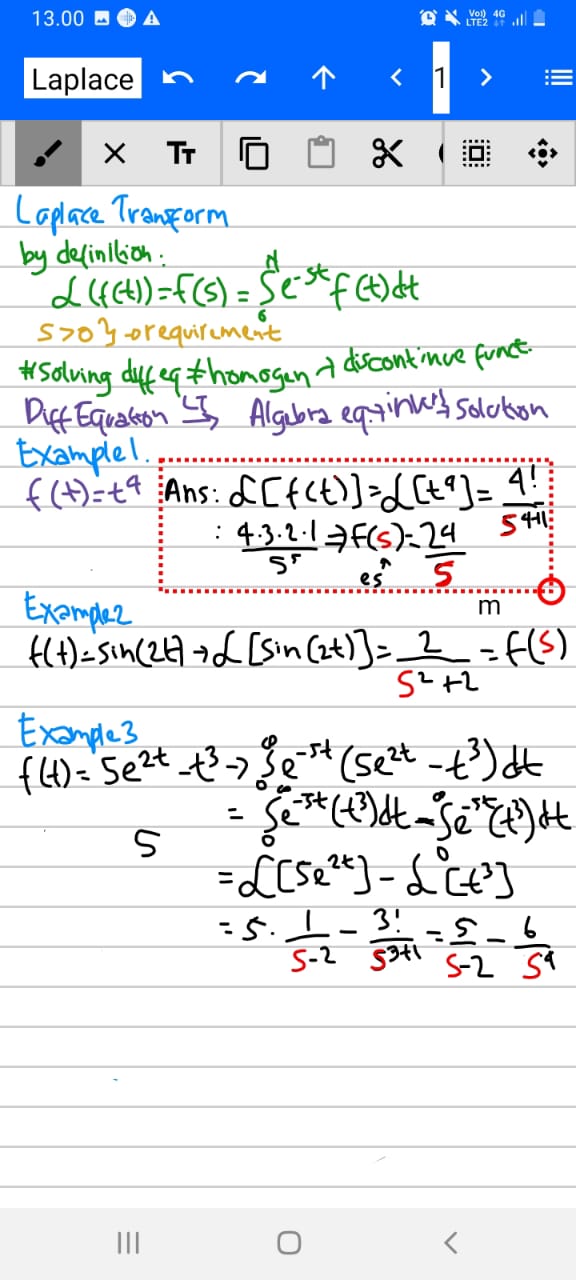 13.00 Vo)) 4G LTE2
Laplace 1
TT
Laplace Tranform
by definition:
L(f(t))=f(s) = ∫e^-st f(t)dt
s>0} → requirement
#Solving diff eq ≠ homogen → discontinue funct.
Diff Equation Algebra eq. → invers Solution
Example1.
f(t)=t^4 Ans: L[f(t)]=L[t^4]= 4!/s^4+1
: 4.3.2.1/s^5 ⇒ F(s)=24/s
es
m
Example2
f(t)=sin(2t) → L[sin(2t)]= 2/s²+2 = f(s)
Example3
f(t)= 5e^2t -t³ → ∫e^-st (5e^2t -t³)dt
= ∫e^-st (t³)dt - ∫e^-st (t³)dt
5
=L[5e^2t] - L[t³]
= 5. 1/s-2 - 3!/s^3+1 = 5/s-2 - 6/s^4